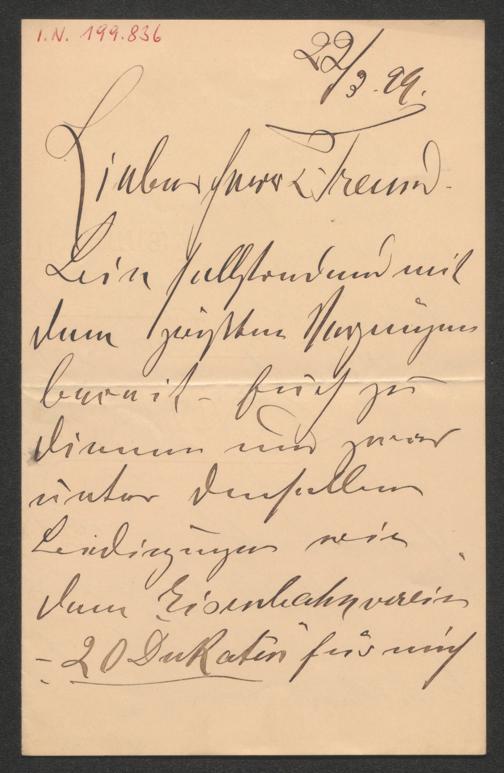 I.N. 199.836
22/3.99.
Lieber Herr u. Freund.
Bin selbstredend mit
dem größten Vergnügen
bereit – Euch zu
dienen und zwar
unter denselben
Bedingungen wie
dem „Eisenbahnverein“
– 20 Dukaten für mich